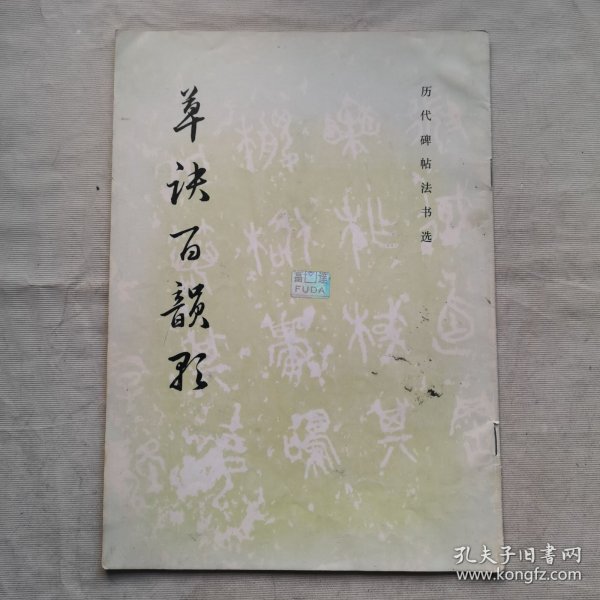 历代碑帖法书选
草诀百韵歌
富达
FUDA
孔夫子旧书网
www.kongfz.com